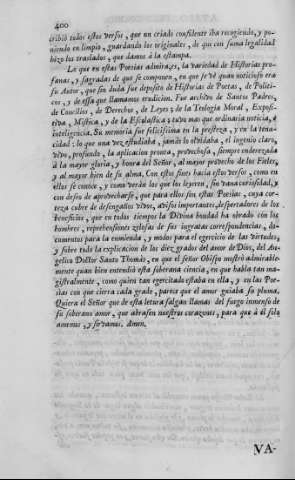 400
cribiò todos estos versos, que un criado confidente iba recogiendo, y po-
niendo en limpio, guardando los originales, de que con suma legalidad
hizo los traslados, que damos à la estampa.
Lo que en estas Poesias admira, es, la variedad de Historias profa-
nas, y sagradas de que se componen, en que se vè quan noticioso era
su Autor, que sin duda fue deposito de Historias de Poetas, de Politi-
cos, y de essa que llamamos erudicion. Fue archivo de Santos Padres,
de Concilios, de Derechos, de Leyes, de la Teología Moral, Exposi-
tiva, Mistica, y de la Escolastica tuvo mas que ordinaria noticia, è
inteligencia. Su memoria fue felicissima en la presteza, y en la tena-
cidad: lo que una vez estudiaba, jamàs lo olvidaba, el ingenio claro,
vivo, profundo, la aplicacion pronta, provechosa, siempre enderezada
à la mayor gloria, y honra del Señor, al mayor provecho de los Fieles,
y al mayor bien de su alma. Con estos fines hacia estos versos, como en
ellos se conoce, y como veràn los que los leyeren, sin vana curiosidad, y
con deseo de aprovecharse, que para ellos son estas Poesias, cuya cor-
teza cubre de desengaños vivos, avisos importantes, despertadores de los
beneficios, que en todos tiempos la Divina bondad ha obrado con los
hombres, reprehensiones zelosas de sus ingratas correspondencias, do-
cumentos para la enmienda, y modos para el exercicio de las virtudes,
y sobre todo la explicacion de los diez grados del amor de Dios, del An-
gelico Doctor Santo Thomàs, en que el señor Obispo mostrò admirable-
mente quan bien entendiò esta soberana ciencia, en que habla tan ma-
gistralmente, como quien tan exercitado estaba en ella, y en las Poe-
sias con que cierra cada grado, parece que el amor guiaba su pluma.
Quiera el Señor que de esta letura salgan llamas del fuego inmenso de
su soberano amor, que abrasen nuestros corazones, para que à èl solo
amemos, y sirvamos. Amen.
VA-